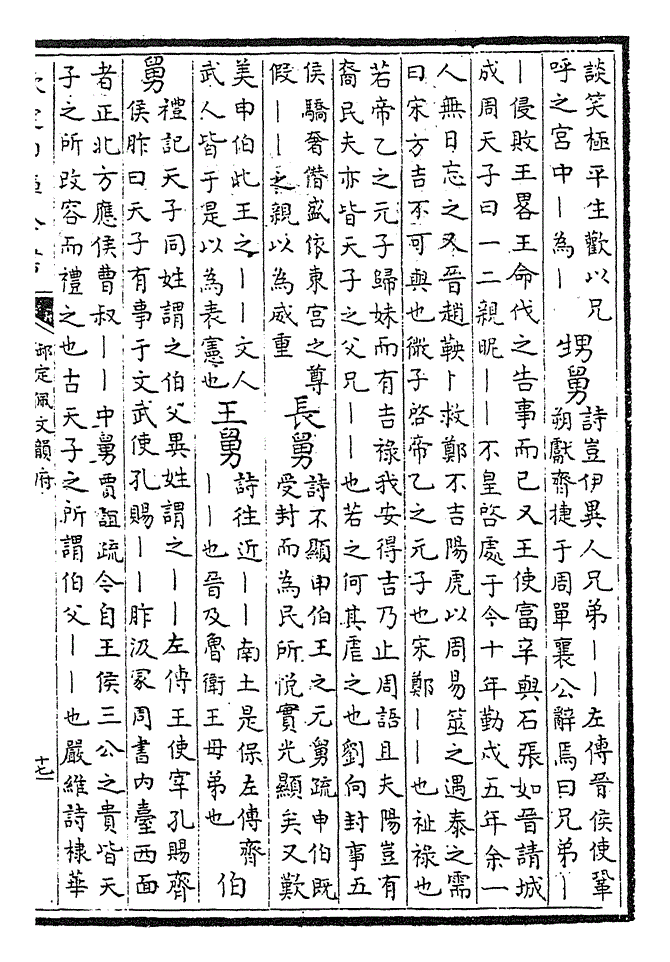 談笑極平生歡以兄
呼之宮中丨為丨
甥舅
詩豈伊異人兄弟丨丨左傳晉侯使鞏
朔獻齊捷于周單襄公辭焉曰兄弟丨
丨侵敗王畧王命伐之告事而已又王使富辛與石張如晉請城
成周天子曰一二親昵丨丨不皇啓處于今十年勤戍五年余一
人無日忘之又晉趙鞅卜救鄭不吉陽虎以周易筮之遇泰之需
曰宋方吉不可與也微子啓帝乙之元子也宋鄭丨丨也祉祿也
若帝乙之元子歸妹而有吉祿我安得吉乃止周語且夫陽豈有
裔民夫亦皆天子之父兄丨丨也若之何其虐之也劉向封事五
侯驕奢僭盛依東宮之尊
假丨丨之親以為威重
長舅
詩不顯申伯王之元舅疏申伯既
受封而為民所悅實光顯矣又歎
美申伯此王之丨丨文人
武人皆于是以為表憲也
王舅
詩往近丨丨南土是保左傳齊
丨丨也晉及魯衛王母弟也
伯
舅
禮記天子同姓謂之伯父異姓謂之丨丨左傳王使宰孔賜齊
侯胙曰天子有事于文武使孔賜丨丨胙汲冢周書內臺西面
者正北方應侯曹叔丨丨中舅賈誼疏令自王侯三公之貴皆天
子之所改容而禮之也古天子之所謂伯父丨丨也嚴維詩棣華
御定佩文韻府
十七